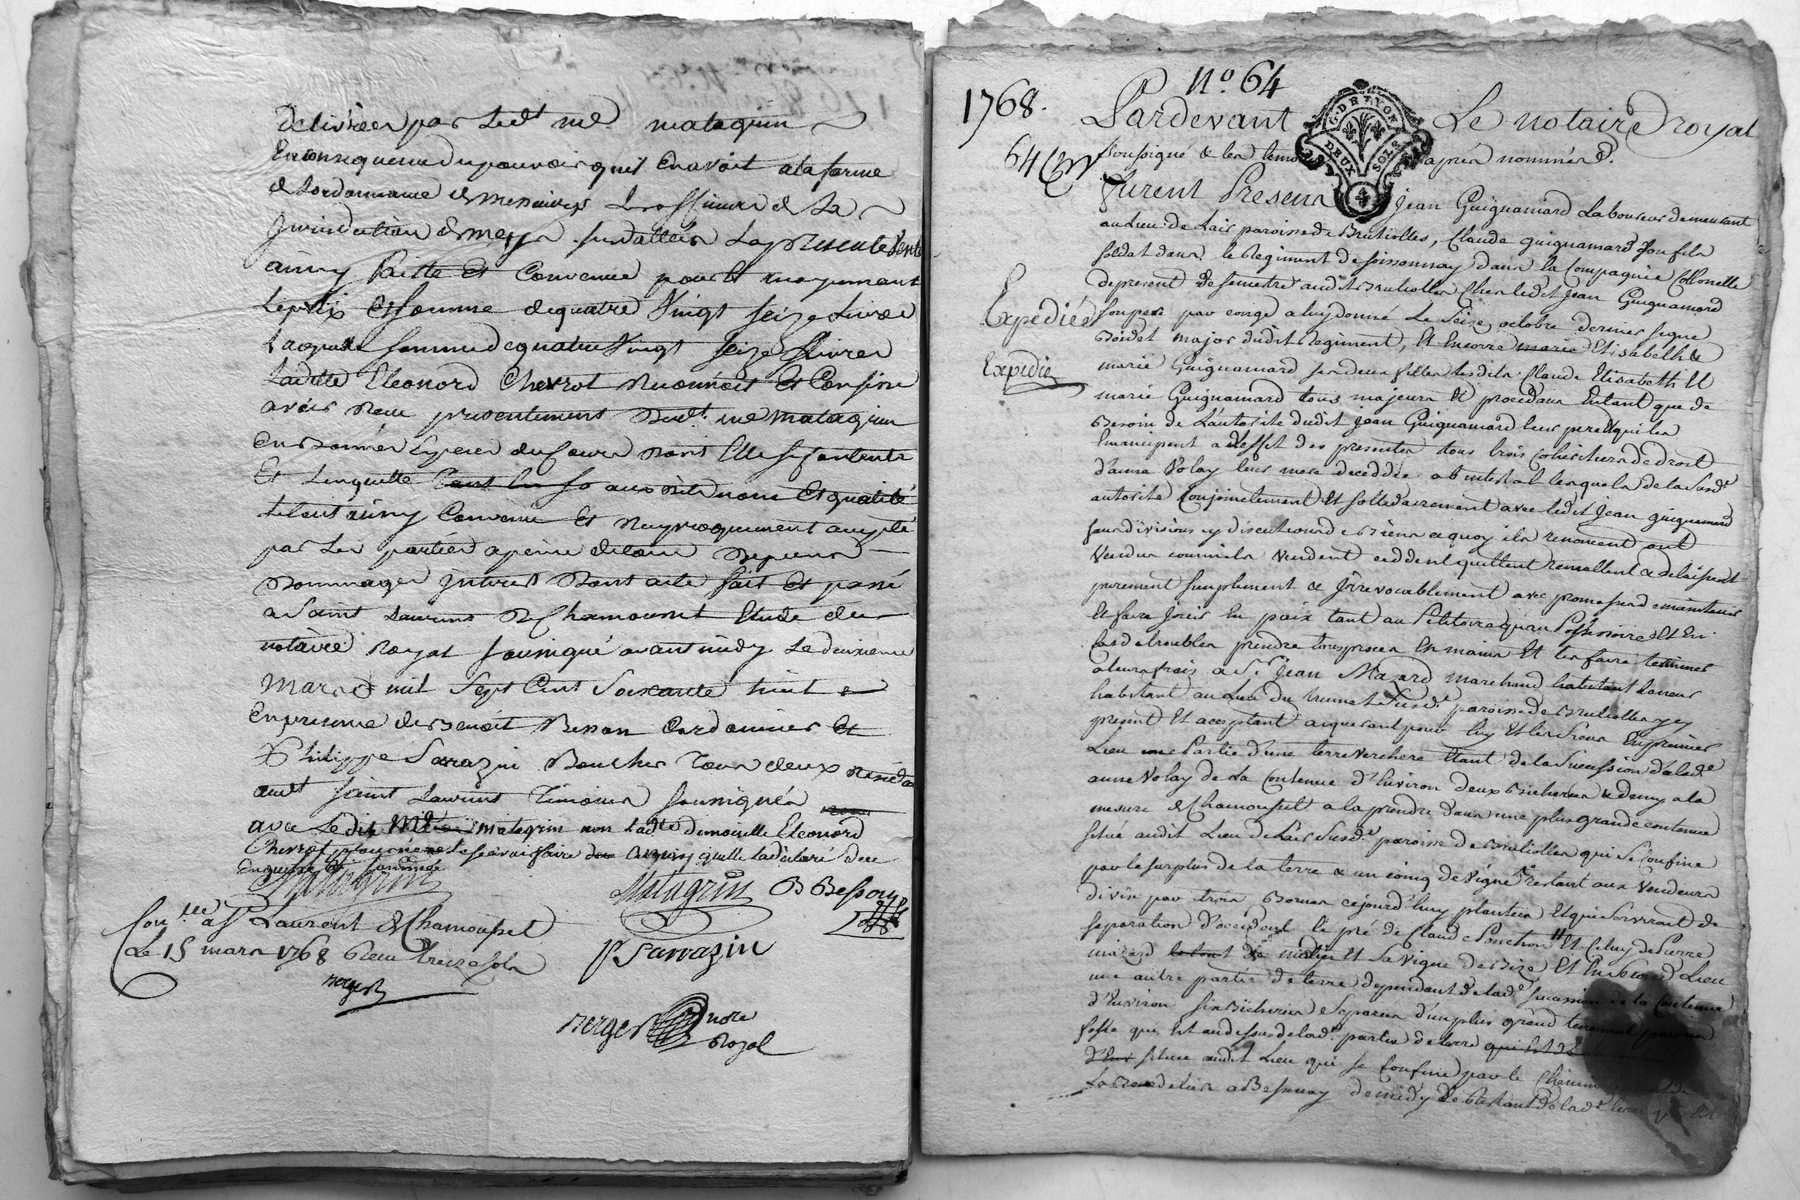 delivrée par ledt me matagrin
En consequence du pouvoir quil En avoit a la forme
de Lordonnance de messieurs Les officiers de La
Jurisdiction de messa Sur dallein La presente Vente
ainsy faitte Et Convenue pour Et moyennant
Le prix Et Somme de quatre Vingt Seize Livres
Laquelle Somme de quatre Vingt Seize Livres
Laditte Eleonord Chevrot Reconnoit Et Confesse
avoir Receu presentement dudt me Matagrin
En bonnes Especes du Cours dont Elle Se contente
Et Lenquitte aux dits noms Et qualité
Le tout ainsy Convenu Et Reciproquement accepté
par Les parties a peine de tous depens
dommages Interest dont acte fait Et passé
a Saint Laurent de Chamousset Etude du
notaire Royal Soussigné avant midy Le deuxieme
mars mil Sept Cent Soixante huit
En presence de Benoit Besson Cordonnier Et
Philippe Sarrazin Boucher Tous deux
audt Saint Laurent Temoins Soussignés
avec Ledit Me matagrin non ladte demoiselle Eleonord
Chevrot pour ne le Scavoir faire ainsy quelle la declaré de ce
Enquise Et Sommée
Matagrin Matagrin B Besson
Con.lée a St Laurent de Chamousset
Le 15 mars 1768 Receu treize sols
P Sarrazin
Berger
Berger nore
Royal
No 64
1768.
64
Pardevant Le notaire royal
Soussigné & les temoins après nommés
G. DE LYON
DEUX SOLS
4
Furent Presens Jean Guignamard Laboureur demeurant
au Lieu de Lais paroisse de Brulliolles, Claude guignamard Son fils
Soldat dans le Regiment de Soissonnay dans la Compagnie Collonelle
de present de Semestre audit Brulliolles Chez ledit Jean Guignamard
Expediés
Son pere par congé a luy donné Le Seize octobre dernier signé
Boidet major dudit Regiment, Et Encore marie Elisabeth &
Expedié
marie Guignamard Ses deux filles lesdits Claude Elisabeth Et
marie Guignamard tous majeurs Et procedans Entant que de
Besoin de L'autorité dudit Jean Guignamard leur pere qui les
Emancipent a L'effet des presentes tous trois cohéritiers de droit
d'anne Volay leur mere decedée abintestat lesquels de la Susde
autorité Conjointement Et Sollidairement avec ledit Jean guignamard
Sans division ny discution de Biens a quoy ils renoncent ont
Vendus comme ils Vendent ceddent quittent remettent & delaissent
purement Simplement & Irrevocablement avec promesse de maintenir
Et faire Jouir En paix tant au Petitoire qu'au Possessoire Et En
Cas de troubles prendre tous procès En mains Et les faire terminer
a leurs frais a Sr Jean Mazard marchand tanneur
habitant au Lieu du Brunet Susde paroisse de Brulliolles icy
present Et acceptant aquerant pour luy Et les Siens En premier
Lieu une Partie d'une terre verchere Etant de la Succession d'ade
anne Volay de la Contenue d'Environ deux Bicherées & demy a la
mesure de Chamousset a la prendre dans une plus grande contenue
Situé audit Lieu de Lais Susde paroisse de Brulliolles qui Se Confine
par le Surplus de la terre & un coing de Vigne restant aux Vendeurs
divis par trois Bornes cejourd'huy plantées Et qui Serviront de
Separation d'occident le pré de Claude Ponchon Et Celuy de Pierre
mazard Et La Vigne de Bize Et En Second Lieu
une autre partie de terre dependant de lade Succession de la Contenue
d'Environ Six Bicherées a Separer d'un plus grand tenement
fossé qui Est au dessus de lade partie de terre
Situé audit Lieu qui Se Confine par le Chemin
a Bessenay de midy le Restant de lade terre